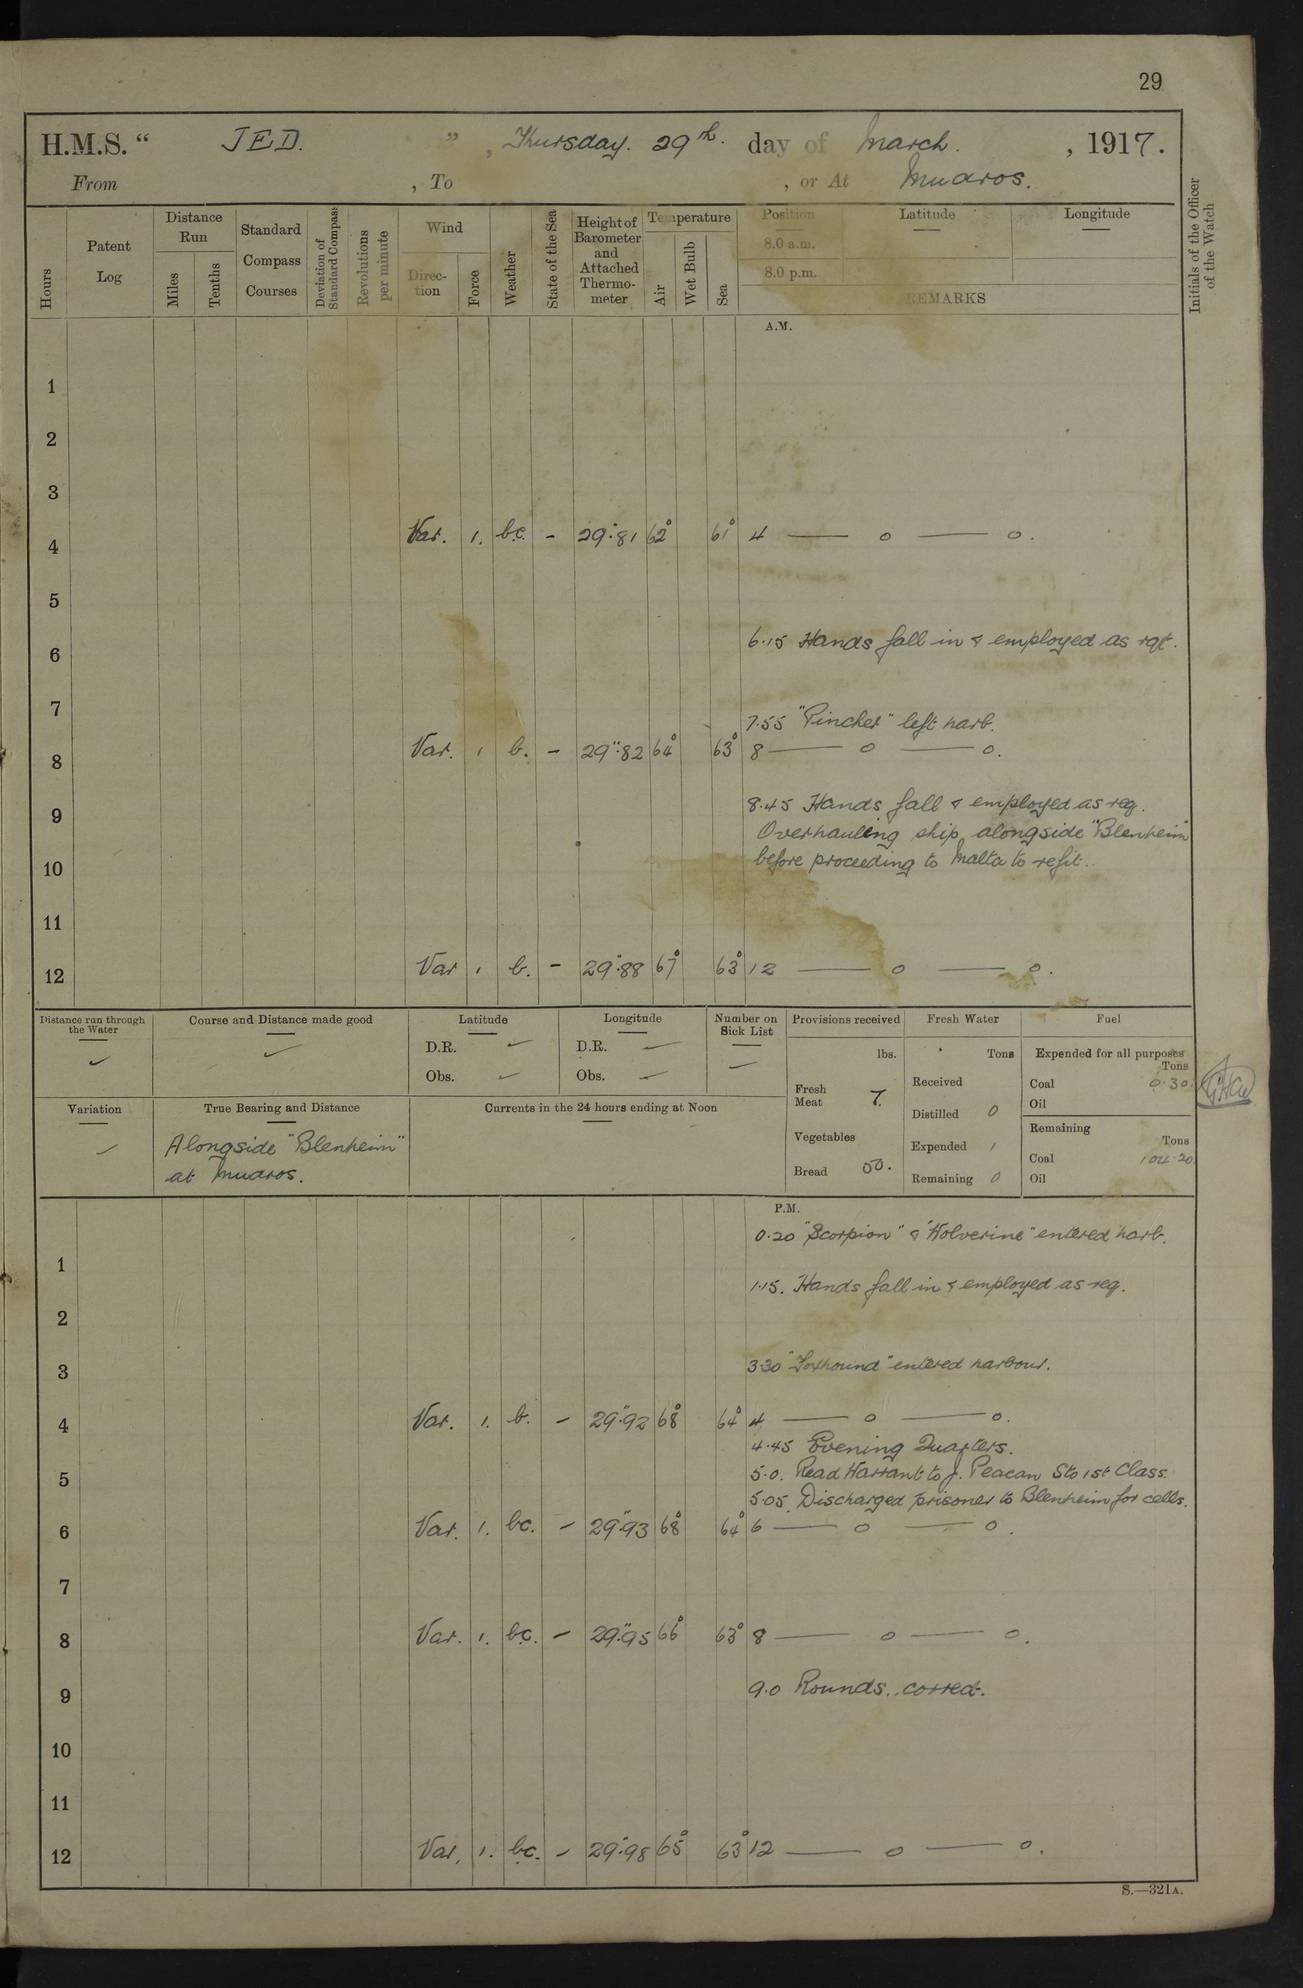 29
H.M.S. “ JED. ” , Thursday. 29th. day of March. , 1917.
From , To , or At Mudros.
Hours
Patent Log
Distance Run
Miles Tenths
Standard Compass Courses
Deviation of Standard Compass
Revolutions per minute
Wind
Direction Force
Weather
State of the Sea
Height of Barometer and Attached Thermometer
Temperature
Air Wet Bulb Sea
Position Latitude Longitude
8.0 a.m.
8.0 p.m.
REMARKS
Initials of the Officer of the Watch
A.M.
1
2
3
4 Var. 1. b.c. - 29".81 62° 61° 4 — o — o.
5
6 6.15 Hands fall in & employed as rqt.
7
7.55 "Pincher" left harb.
8 Var. 1 b. - 29".82 64° 63° 8 — o — o.
9 8.45 Hands fall & employed as req.
Overhauling ship alongside "Blenheim"
10 before proceeding to Malta to refit.
11
12 Var 1 b. - 29".88 67° 63° 12 — o — o.
Distance run through the Water
Course and Distance made good
Latitude
D.R.
Obs.
Longitude
D.R.
Obs.
Number on Sick List
Provisions received
lbs.
Fresh Meat 7.
Vegetables
Bread 50.
Fresh Water
Tons
Received
Distilled 0
Expended 1
Remaining 0
Fuel
Expended for all purposes
Tons
Coal 0.30.
Oil
Remaining
Tons
Coal 104.20
Oil
Variation
True Bearing and Distance
Alongside "Blenheim"
at Mudros.
Currents in the 24 hours ending at Noon
P.M.
0.20 "Scorpion" & "Wolverine" entered harb.
1
1.15. Hands fall in & employed as req.
2
3 3.30 "Foxhound" entered harbour.
4 Var. 1. b. - 29".92 68° 64° 4 — o — o.
4.45 Evening Quarters.
5 5.0. Read Warrant to J. Peacan Sto 1st Class.
5.05. Discharged prisoner to Blenheim for cells.
6 Var. 1. bc. - 29".93 68° 64° 6 — o — o.
7
8 Var. 1. bc. - 29".95 66° 63° 8 — o — o.
9 9.0 Rounds. corred.
10
11
12 Var, 1. bc. - 29".98 65° 63° 12 — o — o.
S.—321A.